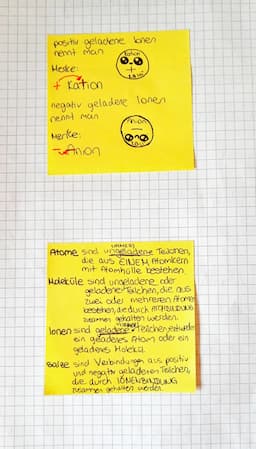 positiv geladene Ionen
nennt man
Merke:
+ Kation
Kation
+
negativ geladene Ionen
nennt man
Merke:
- Anion
Anion
-
IMMER
Atome sind ungeladene Teilchen,
die aus EINEM Atomkern
mit Atomhülle bestehen.
Moleküle sind ungeladene oder
geladene Teilchen, die aus
zwei oder mehreren Atome
bestehen, die durch
zusammen gehalten werden.
IMMER
Ionen sind geladene Teilchen, entweder
ein geladenes Atom oder ein
geladenes Molekül.
Salze sind Verbindungen aus positiv
und negativ geladenen Teilchen,
die durch IONENBINDUNG
zusammen gehalten werden.